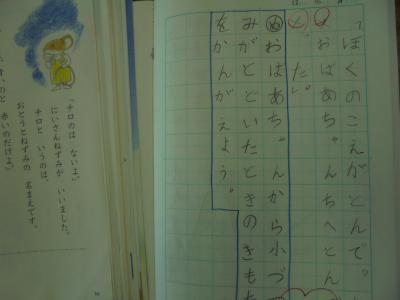 「ぼくのこえがとんで。
おばあちゃんちへとん
た。
めおばあちゃんから小づ
みがとどいたときのきも
をかんがえよう。
「チロのは ないよ。」
にいさんねずみが いいました。
チロと いうのは、
おとうとねずみの 名まえです。
いのと 赤いのだけよ。